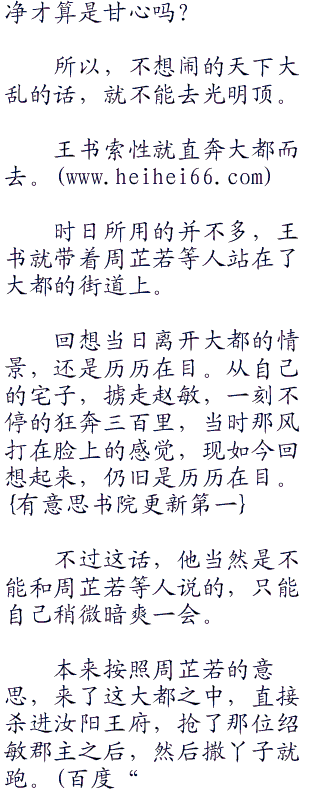 净才算是甘心吗？
所以，不想闹的天下大
乱的话，就不能去光明顶。
王书索性就直奔大都而
去。(www.heihei66.com)
时日所用的并不多，王
书就带着周芷若等人站在了
大都的街道上。
回想当日离开大都的情
景，还是历历在目。从自己
的宅子，掳走赵敏，一刻不
停的狂奔三百里，当时那风
打在脸上的感觉，现如今回
想起来，仍旧是历历在目。
{有意思书院更新第一}
不过这话，他当然是不
能和周芷若等人说的，只能
自己稍微暗爽一会。
本来按照周芷若的意
思，来了这大都之中，直接
杀进汝阳王府，抢了那位绍
敏郡主之后，然后撒丫子就
跑。(百度“